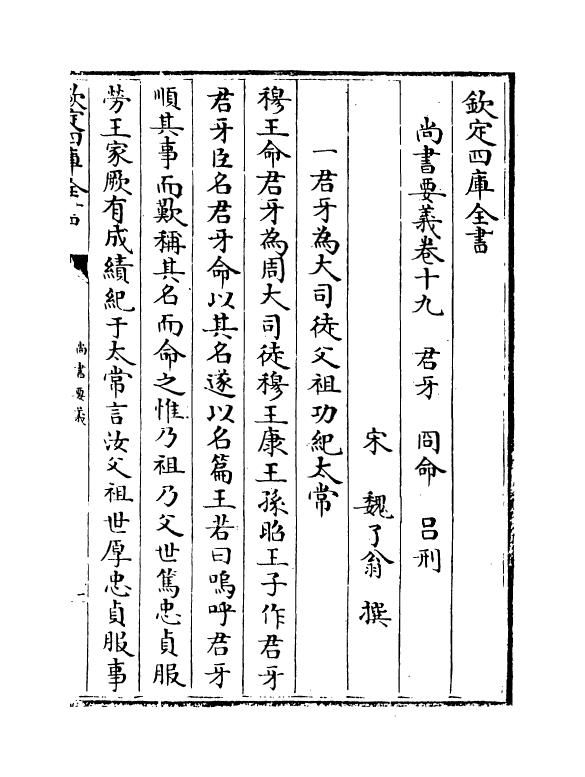 欽定四庫全書
尚書要義卷十九 君牙 冏命 呂刑
宋 魏了翁 撰
一君牙為大司徒父祖功紀太常
穆王命君牙為周大司徒穆王康王孫昭王子作君牙
君牙臣名君牙命以其名遂以名篇王若曰嗚呼君牙
順其事而歎稱其名而命之惟乃祖乃父世篤忠貞服
勞王家厥有成績紀于太常言汝父祖世厚忠貞服事
欽定四庫全書
尚書要義
一